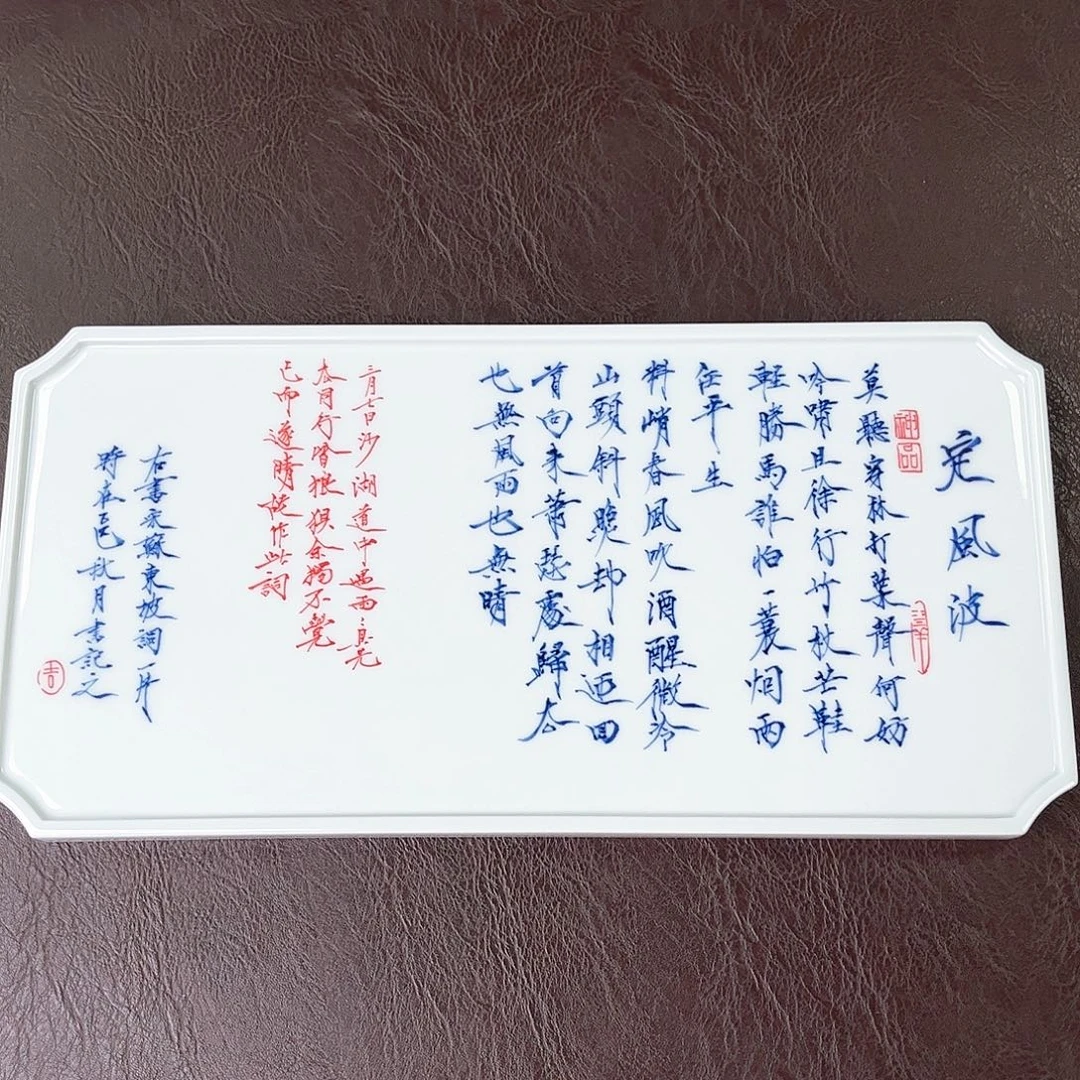 定風波
神品
莫聽穿林打葉聲何妨
吟嘯且徐行竹杖芒鞋
輕勝馬誰怕一蓑烟雨
任平生
料峭春風吹酒醒微冷
山頭斜照却相迎回
首向來蕭瑟處歸去
也無風雨也無晴
三月七日沙湖道中遇雨雨具先
去同行皆狼狽余獨不覺
已而遂晴故作此詞
右書宋蘇東坡詞一片
時在乙巳秋月書記之
吉